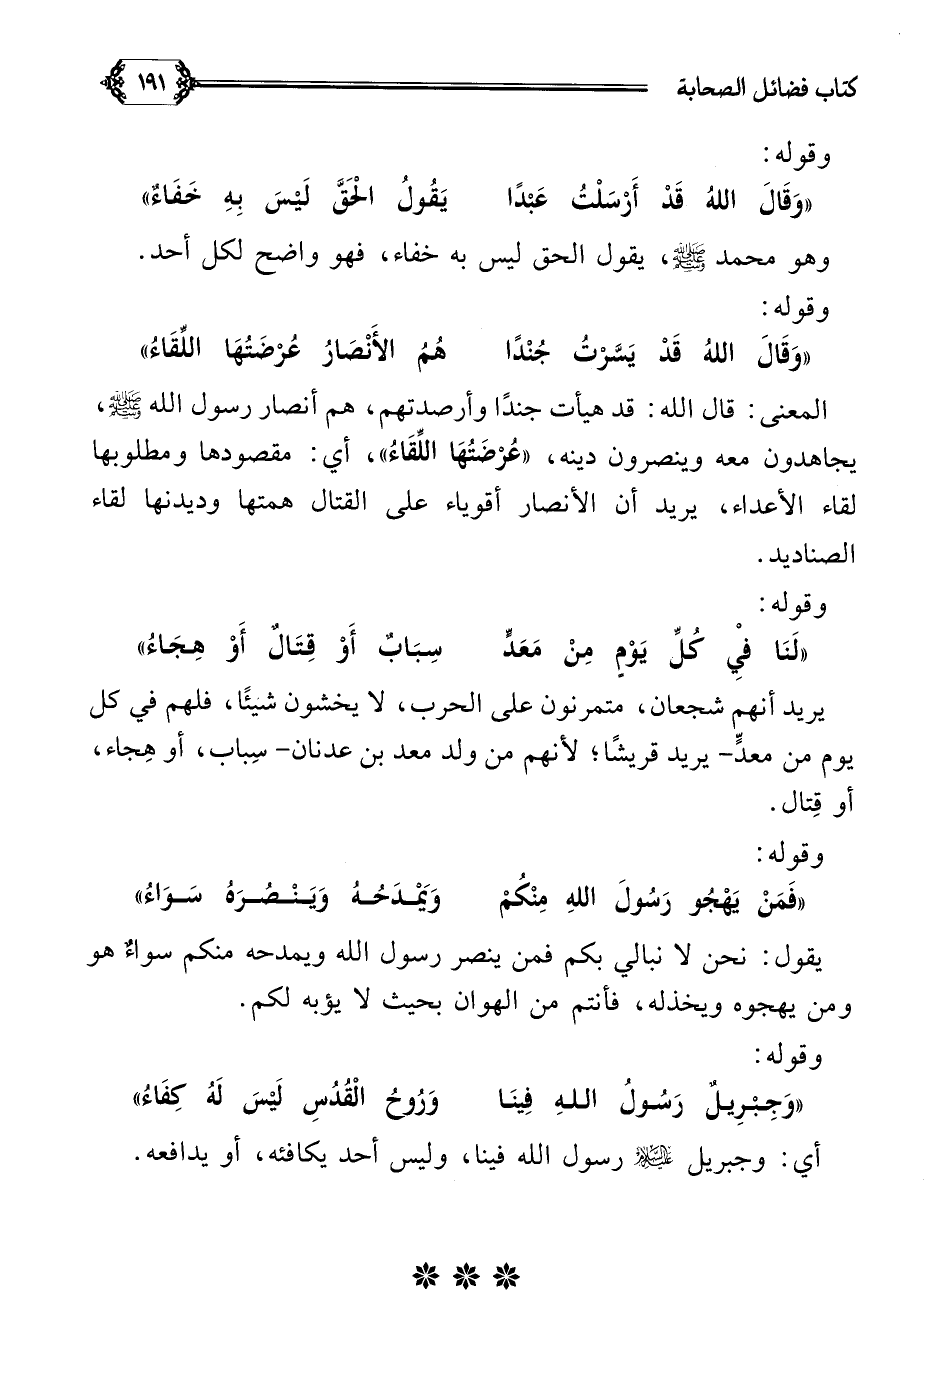 كتاب فضائل الصحابة ١٩١
وقوله:
«وَقَالَ اللهُ قَدْ أَرْسَلْتُ عَبْدًا يَقُولُ الْحَقَّ لَيْسَ بِهِ خَفَاءُ»
وهو محمد ﷺ، يقول الحق ليس به خفاء، فهو واضح لكل أحد.
وقوله:
«وَقَالَ اللهُ قَدْ يَسَّرْتُ جُنْدًا هُمُ الأَنْصَارُ عُرْضَتُهَا اللِّقَاءُ»
المعنى: قال الله: قد هيأت جندًا وأرصدتهم، هم أنصار رسول الله ﷺ،
يجاهدون معه وينصرون دينه، «عُرْضَتُهَا اللِّقَاءُ»، أي: مقصودها ومطلوبها
لقاء الأعداء، يريد أن الأنصار أقوياء على القتال همتها وديدنها لقاء
الصناديد.
وقوله:
«لَنَا فِيْ كُلِّ يَوْمٍ مِنْ مَعَدٍّ سِبَابٌ أَوْ قِتَالٌ أَوْ هِجَاءُ»
يريد أنهم شجعان، متمرنون على الحرب، لا يخشون شيئًا، فلهم في كل
يوم من معدٍّ- يريد قريشًا؛ لأنهم من ولد معد بن عدنان- سِباب، أو هِجاء،
أو قِتال.
وقوله:
«فَمَنْ يَهْجُو رَسُولَ اللهِ مِنْكُمْ وَيَمْدَحُهُ وَيَنْصُرَهُ سَوَاءُ»
يقول: نحن لا نبالي بكم فمن ينصر رسول الله ويمدحه منكم سواءٌ هو
ومن يهجوه ويخذله، فأنتم من الهوان بحيث لا يؤبه لكم.
وقوله:
«وَجِبْرِيلٌ رَسُولُ اللهِ فِينَا وَرُوحُ الْقُدُسِ لَيْسَ لَهُ كِفَاءُ»
أي: وجبريل عليه السلام رسول الله فينا، وليس أحد يكافئه، أو يدافعه.